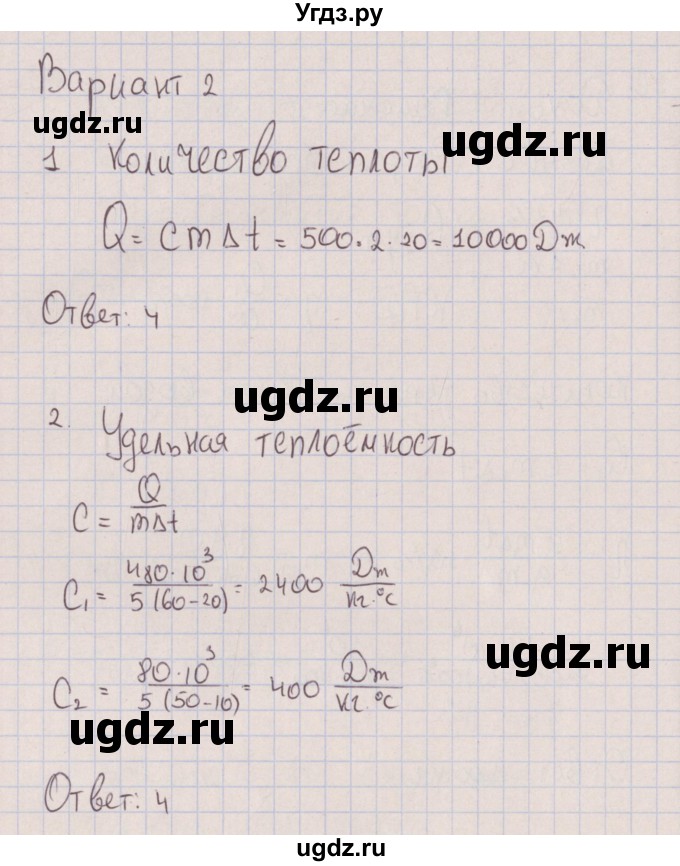 Угдз.ру
Вариант 2
ugdz.ru
ugdz.ru
1 Количество теплоты
Q = cmΔt = 500·2·20 = 10000 Дж
Ответ: 4
ugdz.ru
2. Удельная теплоёмкость
C = Q/mΔt
C₁ = 480·10³/5(60-20) = 2400 Дж/кг·°C
ugdz.ru
C₂ = 80·10³/5(50-10) = 400 Дж/кг·°C
ugdz.ru
Ответ: 4
ugdz.ru